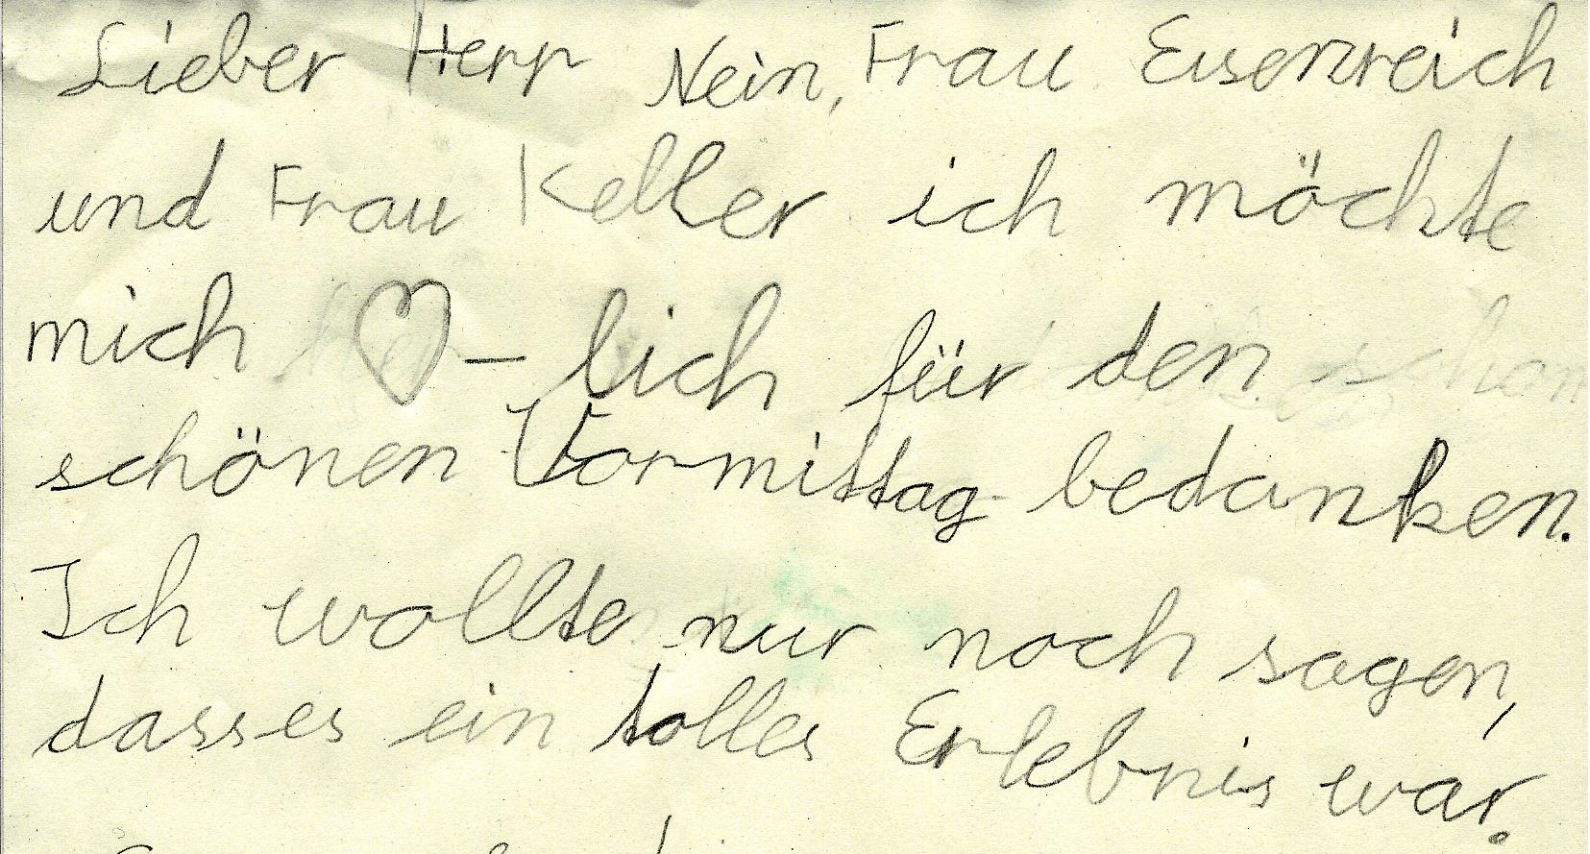 Lieber Herr Nein, Frau Eisenreich
und Frau Keller ich möchte
mich ♡-lich für den
schönen Vormittag bedanken.
Ich wollte nur noch sagen,
dasses ein tolles Erlebnis war.